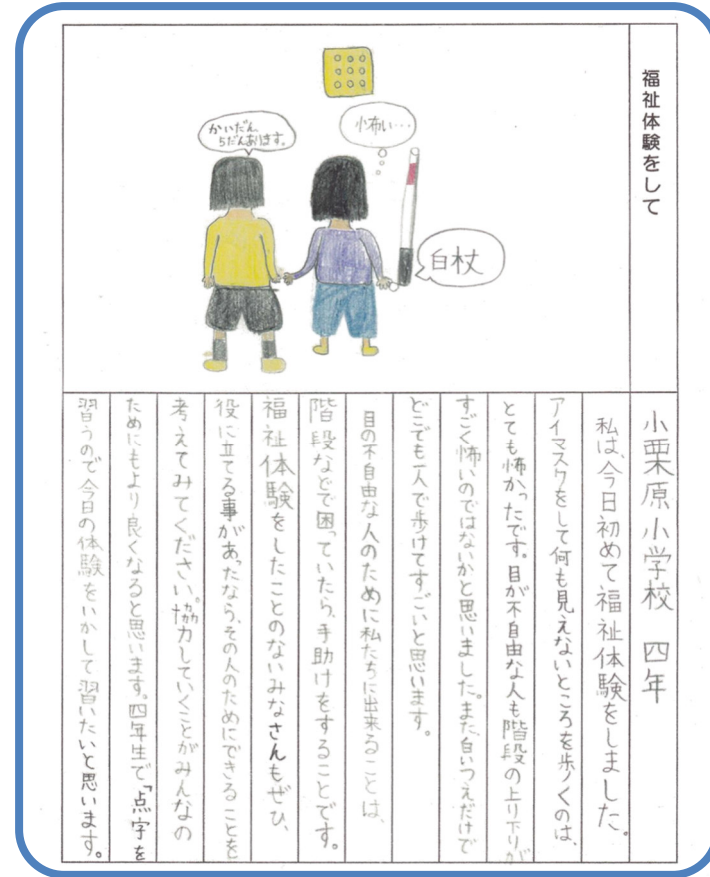 福祉体験をして
かいだん
5だんあります。
小布い…
白杖
小栗原小学校　四年
私は、今日初めて福祉体験をしました。
アイマスクをして何も見えないところを歩くのは、
とても怖かったです。目が不自由な人も階段の上り下りが
すごく怖いのではないかと思いました。また、白いつえだけで
どこでも一人で歩けてすごいと思います。
目の不自由な人のために私たちに出来ることは、
階段などで困っていたら、手助けをすることです。
福祉体験をしたことのないみなさんもぜひ、
役に立てる事があったなら、その人のためにできることを
考えてみてください。協力していくことがみんなの
ためにもより良くなると思います。四年生で「点字を
習うので今日の体験をいかして習いたいと思います。